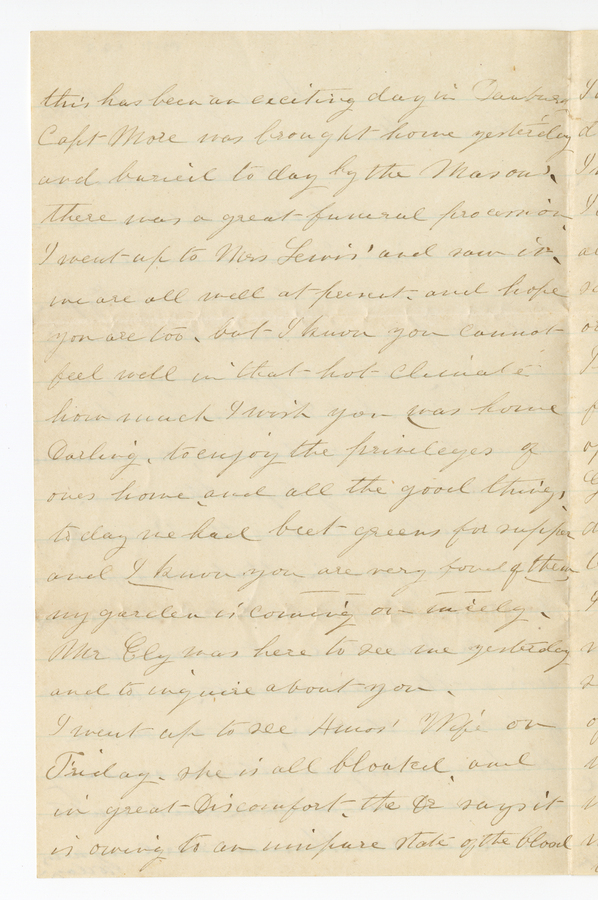 this has been an exciting day in Danbury
Capt More was brought home yesterday
and buried to day by the Masons,
there was a great funeral procession,
I went up to Mrs Lewis' and saw it,
we are all well at present, and hope
you are too, but I know you cannot
feel well in that hot climate
how much I wish you was home
Darling, to enjoy the privileges of
ones home and all the good things,
to day we had beet greens for supper
and I know you are very fond of them
my garden is coming on nicely,
Mr Ely was here to see me yesterday
and to inquire about you,
I went up to see Amos' Wife on
Friday, she is all bloated and
in great Discomfort, the Dr says it
is owing to an impure state of the blood